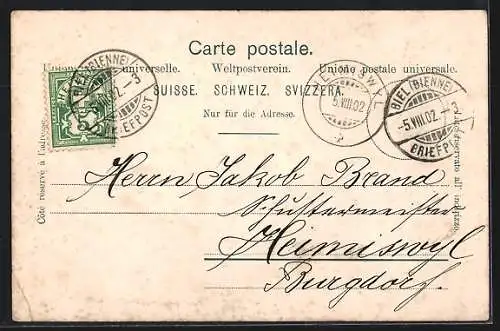 Carte postale.
Union postale universelle. Weltpostverein. Unione postale universale.
SUISSE. SCHWEIZ. SVIZZERA.
Nur für die Adresse.
Côté réservé à l'adresse.
Lato riservato all' indirizzo.
BIEL (BIENNE)
-5.VIII.02.-3
BRIEFPOST
5.VIII.02
BIEL (BIENNE)
-5.VIII.02.-3
BRIEFPOST
Herrn Jakob Brand
Schustermeister
Heimiswyl
Burgdorf.